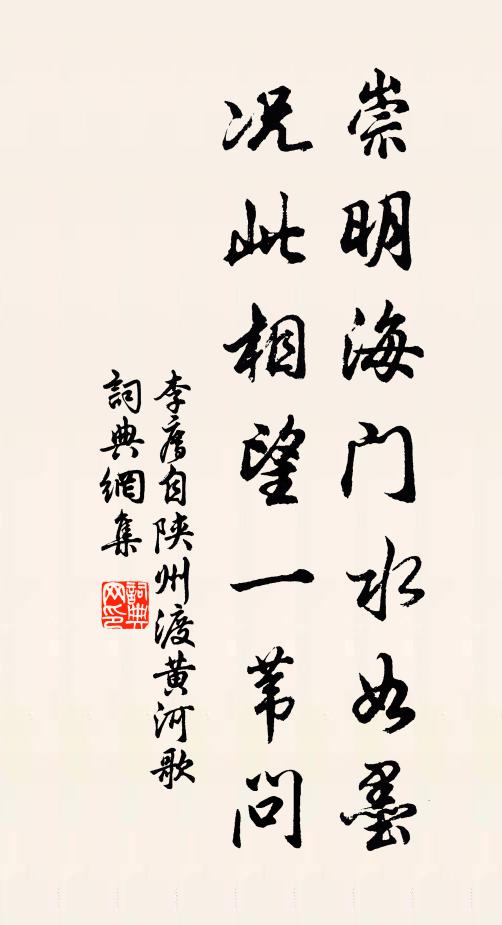 崇明海门水如墨
况此相望一苇问
李廌自陕州渡黄河歌
詞典網集
詞典
网印